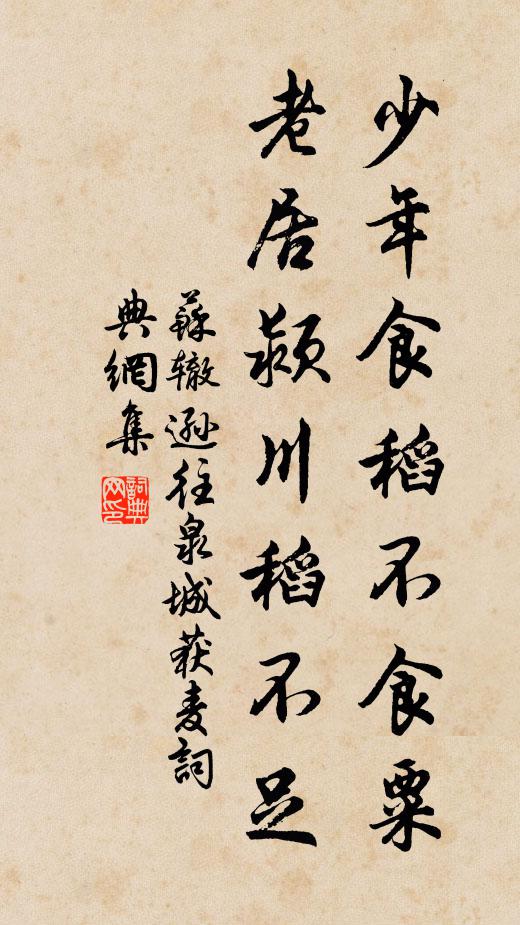 少年食稻不食粟
老居潁川稻不足
蘇辙遜往泉城获麦詞
典網集
詞典网印